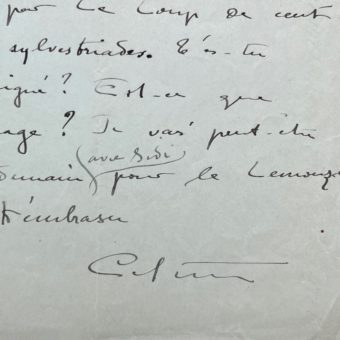 par le Loup de cent
sylvestriades. Es-tu
igné ? Est-ce que
age ? Je vais peut-être
demain (avec Sidi) pour le Lemouzi
t'embrasse
Colette